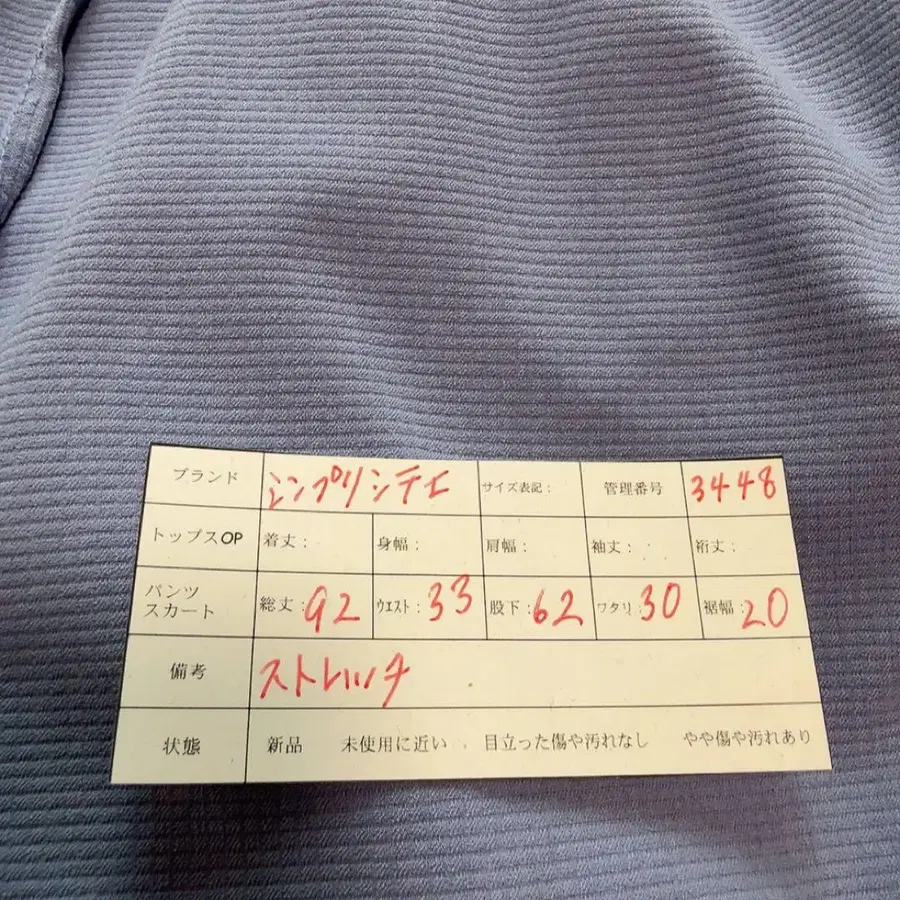 ブランド シンプリシテェ サイズ表記: 管理番号 3448
トップスOP 着丈: 身幅: 肩幅: 袖丈: 裄丈:
パンツ
スカート 総丈: 92 ウエスト: 33 股下: 62 ワタリ: 30 裾幅: 20
備考 ストレッチ
状態 新品 未使用に近い 目立った傷や汚れなし やや傷や汚れあり